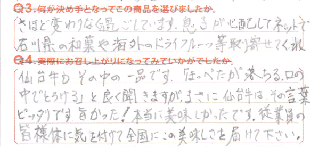 Q3.何か決め手となってこの商品を選びましたか。
さほど変わりなく過ごしています。息子が心配してネットで
石川県の和菓や海外のドライフルーツ等取り寄せてくれ
Q4.実際にお召し上がりになってみていかがでしたか。
仙台牛もその中の一品です。「ほっぺたが落ちる、口の
中でとろける」と良く聞きますが、まさに仙台牛はその言葉
ピッタリです 旨かった!本当に美味しかったです。従業員の
皆様体に気を付けて全国にこの美味しさを届けて下さい。